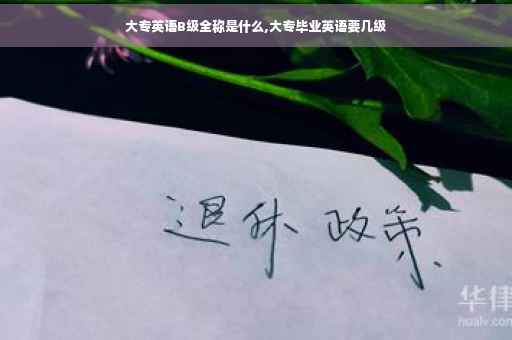 大专英语B级全称是什么,大专毕业英语要几级
退休 政策
华律
hualv.com